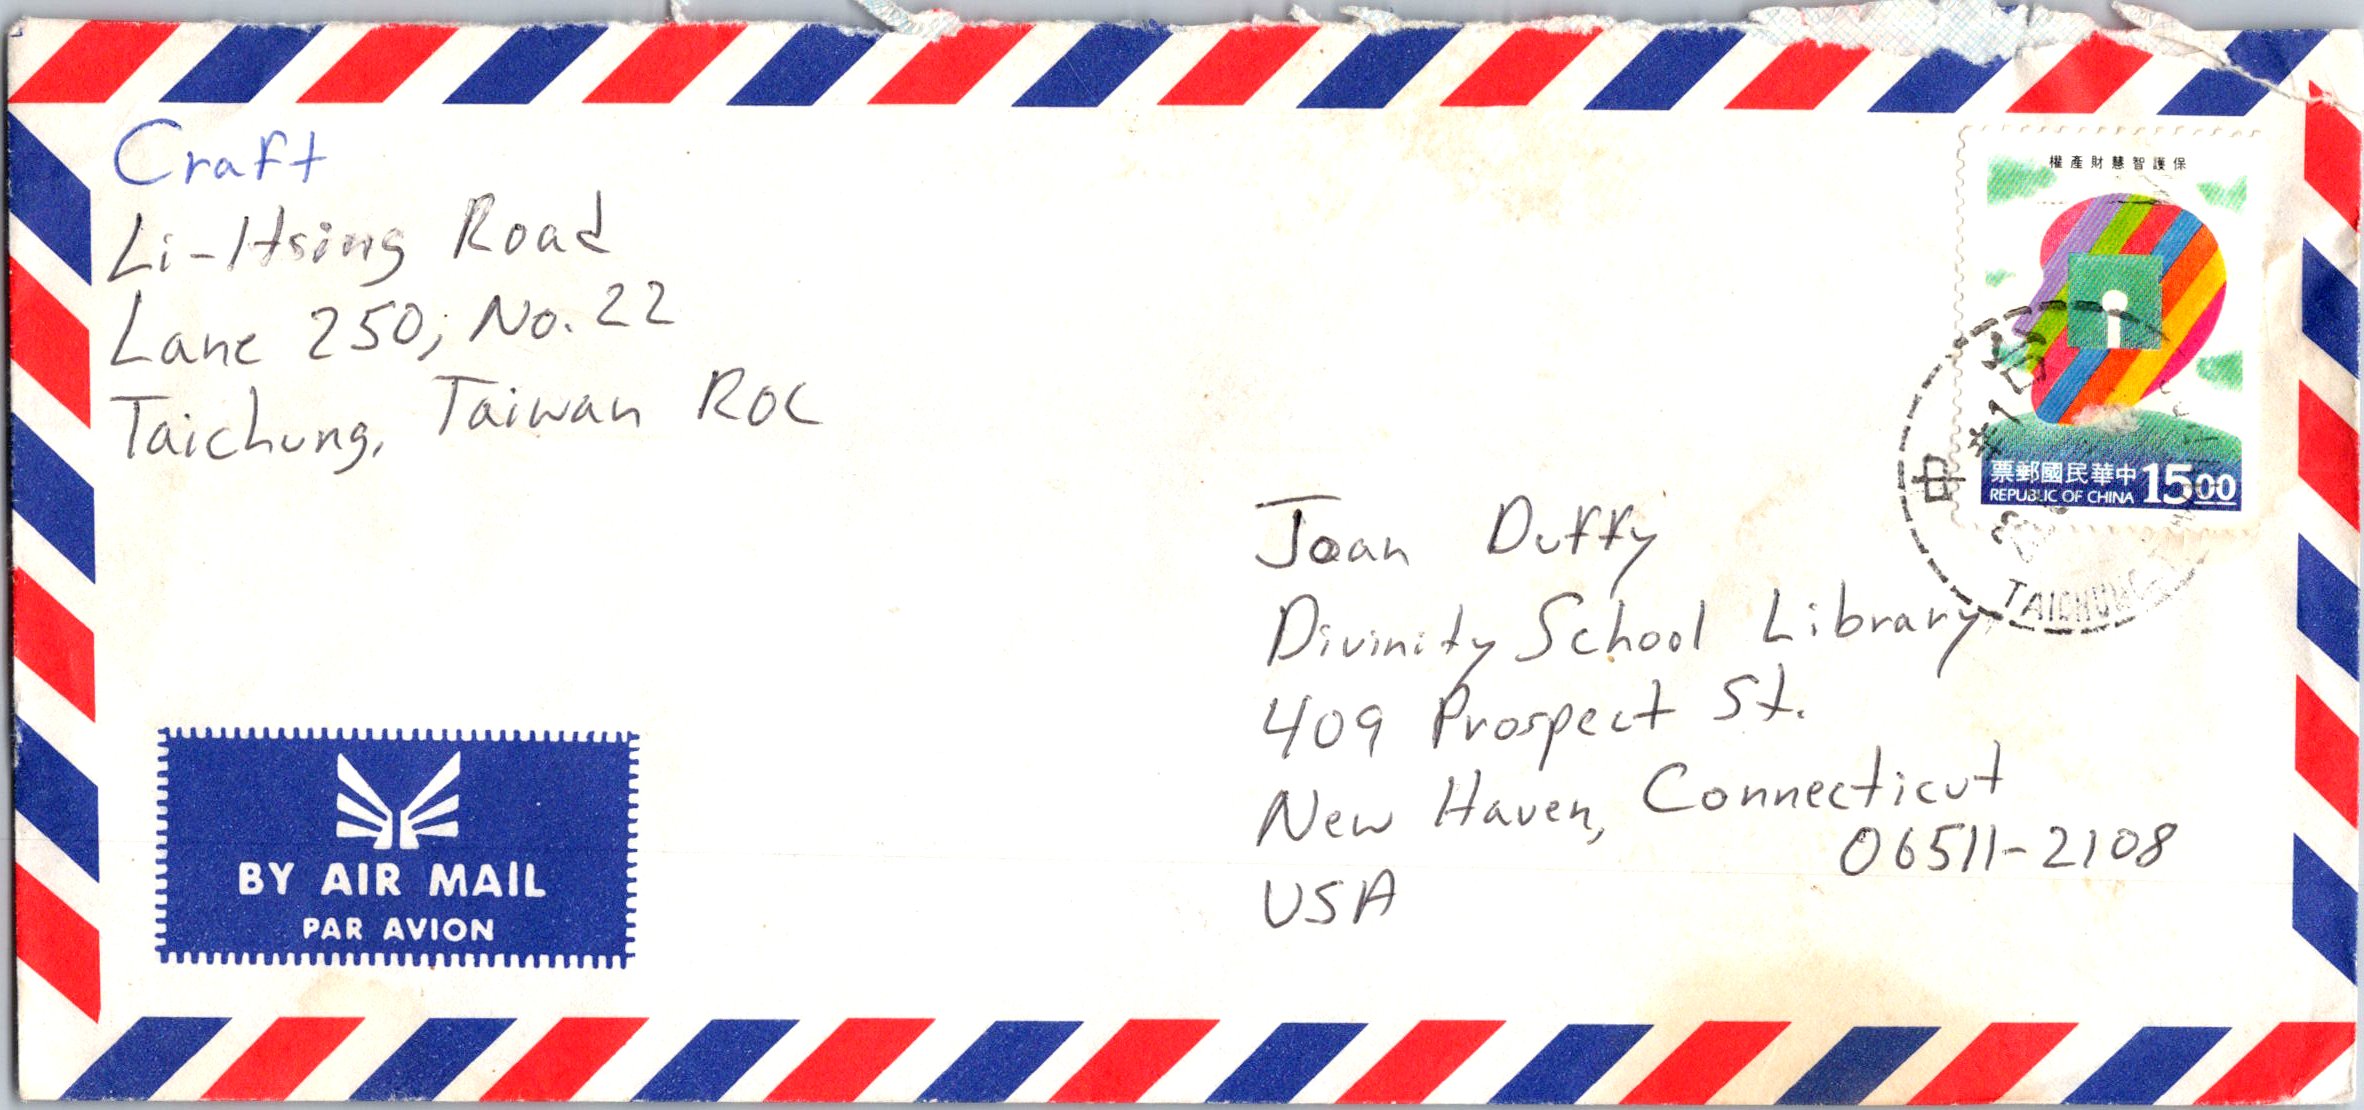 Craft
Li-Hsing Road
Lane 250, No. 22
Taichung, Taiwan ROC
權產財慧智護保
票郵國民華中 15.00
REPUBLIC OF CHINA
中
TAICHUNG
Joan Duffy
Divinity School Library
409 Prospect St.
New Haven, Connecticut
06511-2108
USA
BY AIR MAIL
PAR AVION